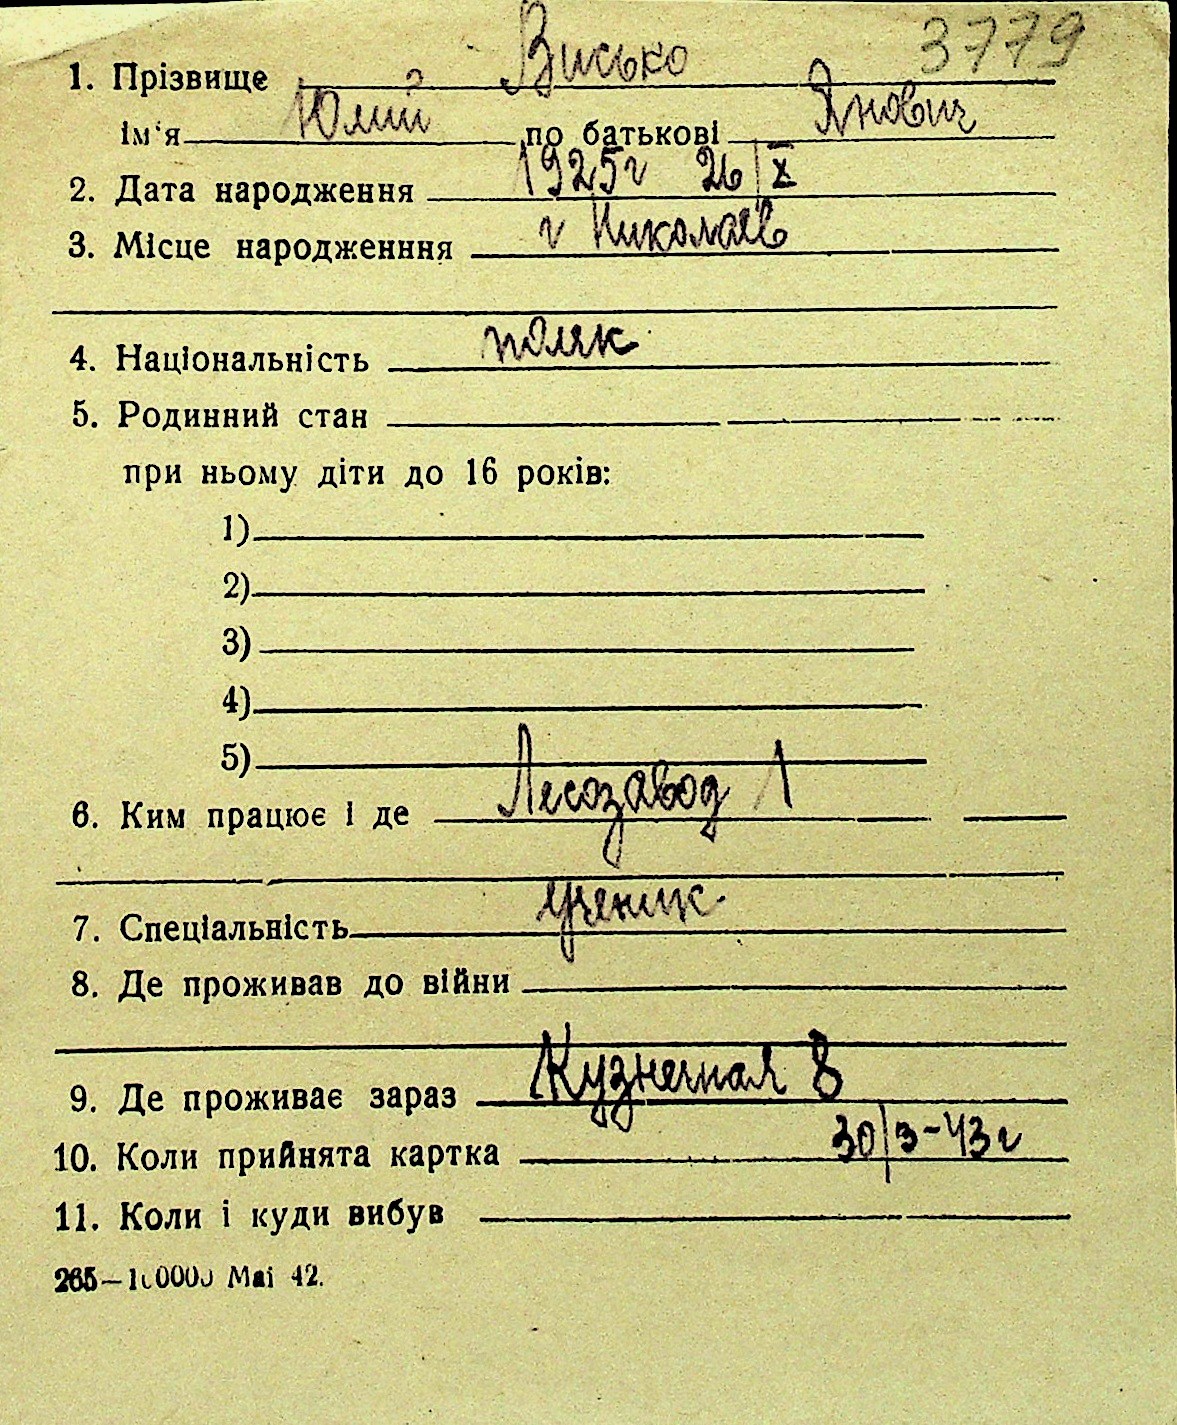 3779
1. Прізвище Висько
ім'я Юлий по батькові Янович
2. Дата народження 1925г 26/X
3. Місце народженння г Николаев
4. Національність поляк
5. Родинний стан
при ньому діти до 16 років:
1)
2)
3)
4)
5)
6. Ким працює і де Лесозавод 1
7. Спеціальність ученик
8. Де проживав до війни
9. Де проживає зараз Кузнечная 8
10. Коли прийнята картка 30/3-43г
11. Коли і куди вибув
265—100000 Mai 42.